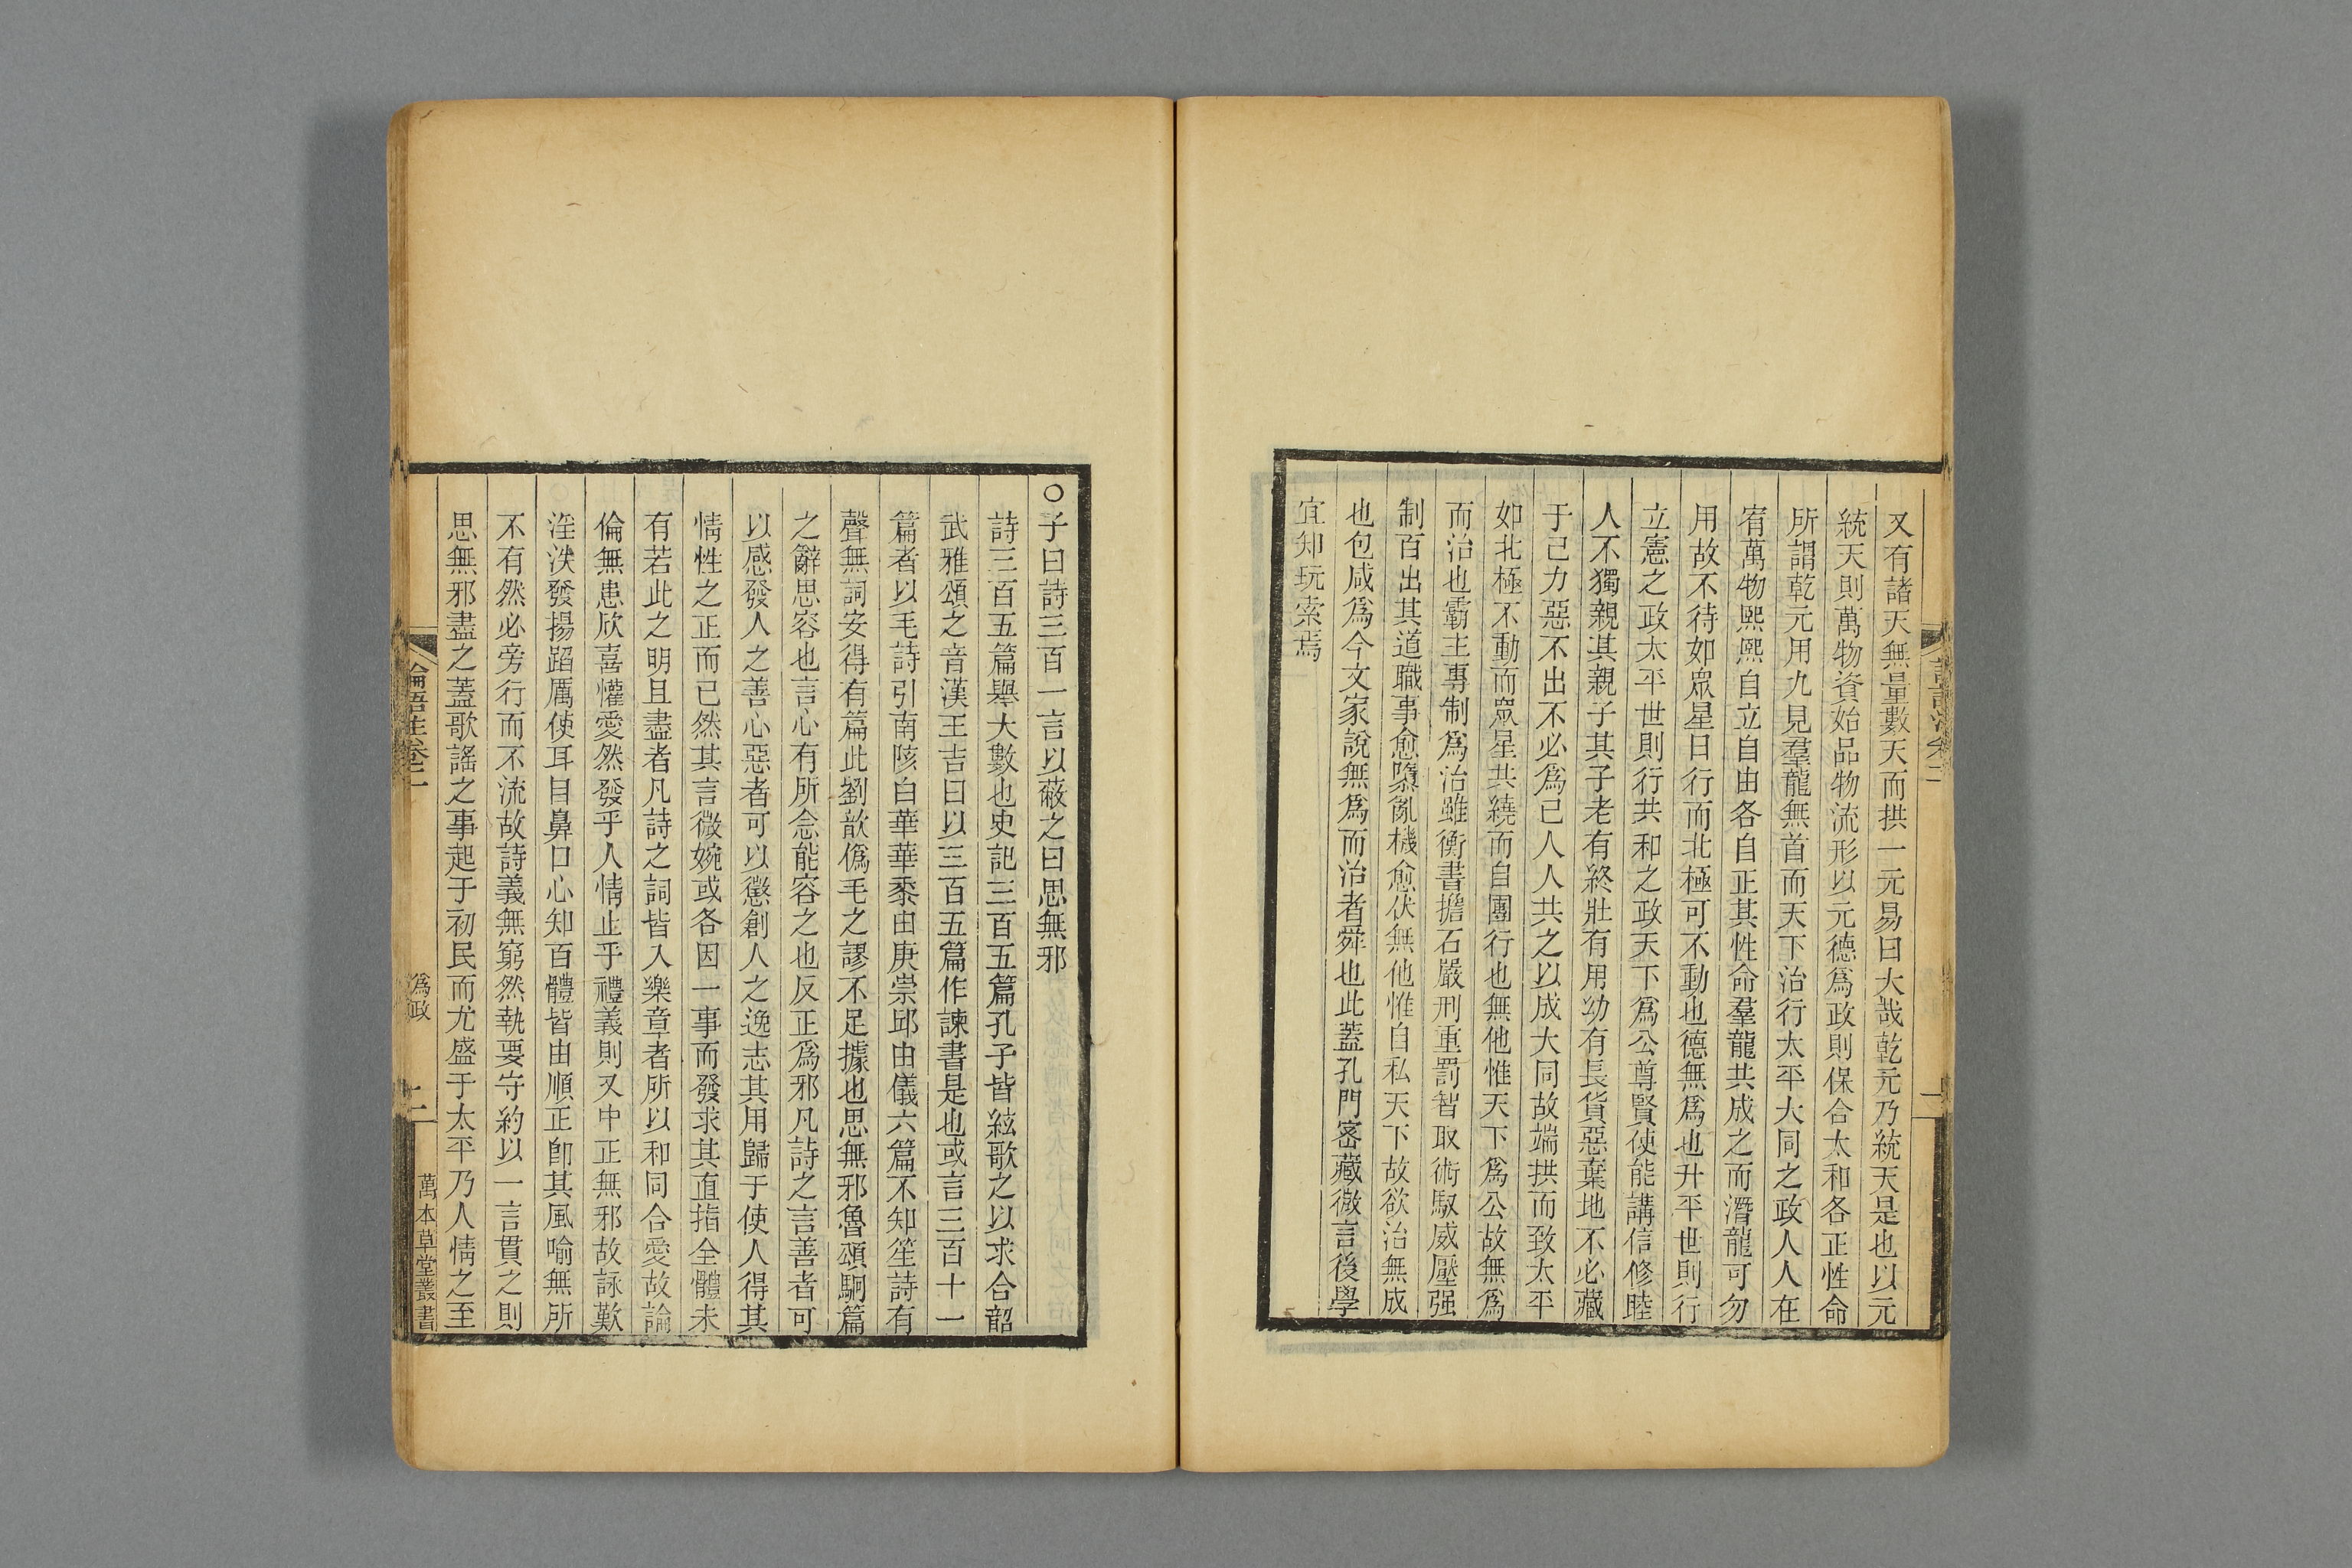 又有諸天無量數天而拱一元易曰大哉乾元乃統天是也以元
統天則萬物資始品物流形以元德爲政則保合太和各正性命
所謂乾元用九見羣龍無首而天下治行太平大同之政人人在
宥萬物熙熙自立自由各自正其性命羣龍共成之而潛龍可勿
用故不待如眾星日行而北極可不動也德無爲也升平世則行
立憲之政太平世則行共和之政天下爲公尊賢使能講信修睦
人不獨親其親子其子老有終壯有用幼有長貨惡棄地不必藏
于己力惡不出不必爲己人人共之以成大同故端拱而致太平
如北極不動而眾星共繞而自團行也無他惟天下爲公故無爲
而治也霸主專制爲治雖衡書擔石嚴刑重罰智取術馭威壓强
制百出其道職事愈隳亂機愈伏無他惟自私天下故欲治無成
也包咸爲今文家說無爲而治者舜也此蓋孔門密藏微言後學
宜知玩索焉
○子曰詩三百一言以蔽之曰思無邪
詩三百五篇舉大數也史記三百五篇孔子皆絃歌之以求合韶
武雅頌之音漢王吉曰以三百五篇作諫書是也或言三百十一
篇者以毛詩引南陔白華華黍由庚崇邱由儀六篇不知笙詩有
聲無詞安得有篇此劉歆僞毛之謬不足據也思無邪魯頌駉篇
之辭思容也言心有所念能容之也反正爲邪凡詩之言善者可
以感發人之善心惡者可以懲創人之逸志其用歸于使人得其
情性之正而已然其言微婉或各因一事而發求其直指全體未
有若此之明且盡者凡詩之詞皆入樂章者所以和同合愛故論
倫無患欣喜懽愛然發乎人情止乎禮義則又中正無邪故詠歎
淫泆發揚蹈厲使耳目鼻口心知百體皆由順正卽其風喻無所
不有然必旁行而不流故詩義無窮然執要守約以一言貫之則
思無邪盡之蓋歌謠之事起于初民而尤盛于太平乃人情之至
論語注卷二
爲政
二
萬木草堂叢書